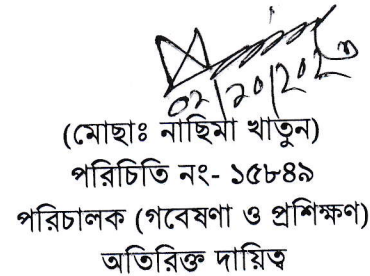 (মোছাঃ নাছিমা খাতুন)
পরিচিতি নং- ১৫৮৪৯
পরিচালক (গবেষণা ও প্রশিক্ষণ)
অতিরিক্ত দায়িত্ব